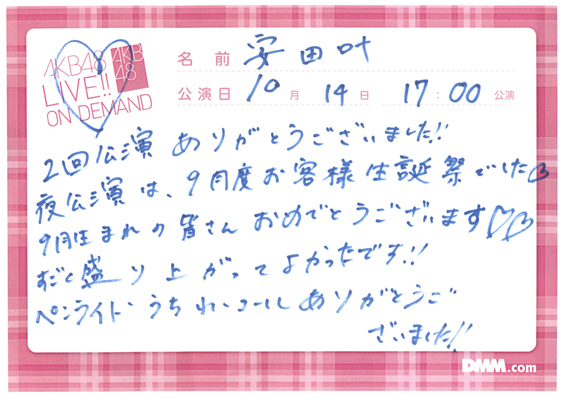 AKB48
AKB48
LIVE!!
ON DEMAND
名前 安田叶
公演日 10月 14日 17:00 公演
2回公演 ありがとうございました!!
夜公演は、9月度お客様生誕祭でした
9月生まれの皆さん おめでとうございます♡♡
すごく盛り上がってよかったです!!
ペンライト・うちわ・コールありがとうご
ざいました!!
DMM.com